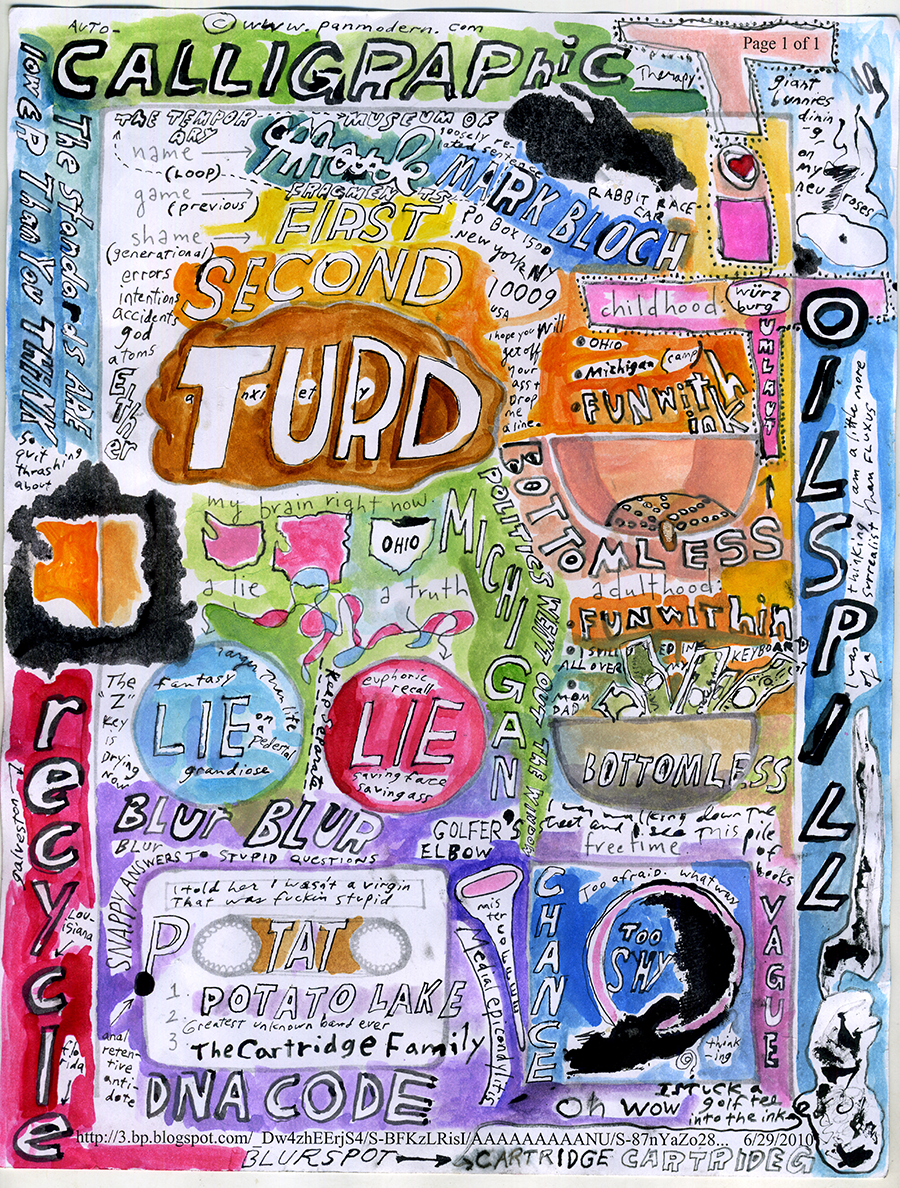 AUTO-
© www.panmodern.com
Page 1 of 1
CALLIGRAPhiC
Therapy
T
giant
bunnies
dinin
-g
on
my
new
roses
The standards ARE
lowER Than You THINK
quit
thrashing
about
THE TEMPOR
ARY
MUSEUM OF
name
(LOOP)
game
(previous
shame
(generational)
errors
intentions
accidents
god
atoms
Either
FRAGMENTS
MARK BLOCH
RABBIT RACE
CAR
PO BOX 1500
New York NY
10009
USA
I hope you will
get off
your
ass +
DROP
me
a line.
FIRST
SECOND
TURD
a nxi et y
childhood:
würz
burg
UMLAUT
OHIO
Michigan (camp)
FUNwith
ink
BOTTOMLESS
adulthood:
FUNWIThin
I STILL
ED IN
KEYBOARD
ALL OVER
MY
MOM
DAD
BOTTOMLESS
OILSPILL
I was thinking I am a little more
of a surrealist than FLUXUS
my brain right now:
OHIO
MICHIGAN
POLITICS WENT OUT THE WINDOW
a lie
a truth
larger than life
fantasy
LIE
on
a
pedestal
grandiose
keep separate
euphoric
recall
LIE
saving face
saving ass
"The
"Z"
Key
is
DRYING
NOW
recycle
galveston
Lou-
isiana
flo
rida
BLUR BLUR
BLUR
GOLFER'S
ELBOW
SNAPPY ANSWERS TO STUPID QUESTIONS
I told her I wasn't a virgin
That was fuckin stupid
P
TAT
1. POTATO LAKE
2. Greatest unknown band ever
3 TheCartridge Family
anal
reten-
tive
anti-
dote
DNA CODE
mis
ter
Medial epicondylitis
I was walking down the
street and I see this pile
of
books
free time.
CHANCE
Too afraid. what was
TOO
SHY
© think
-ing
VAGUE
Oh wow
I STUCK a
golf tee
into the ink
http://3.bp.blogspot.com/_Dw4zhEErjS4/S-BFKzLRisI/AAAAAAAAANU/S-87nYaZo28... 6/29/2010
BLURSPOT
CARTRIDGE CARTRIDEG